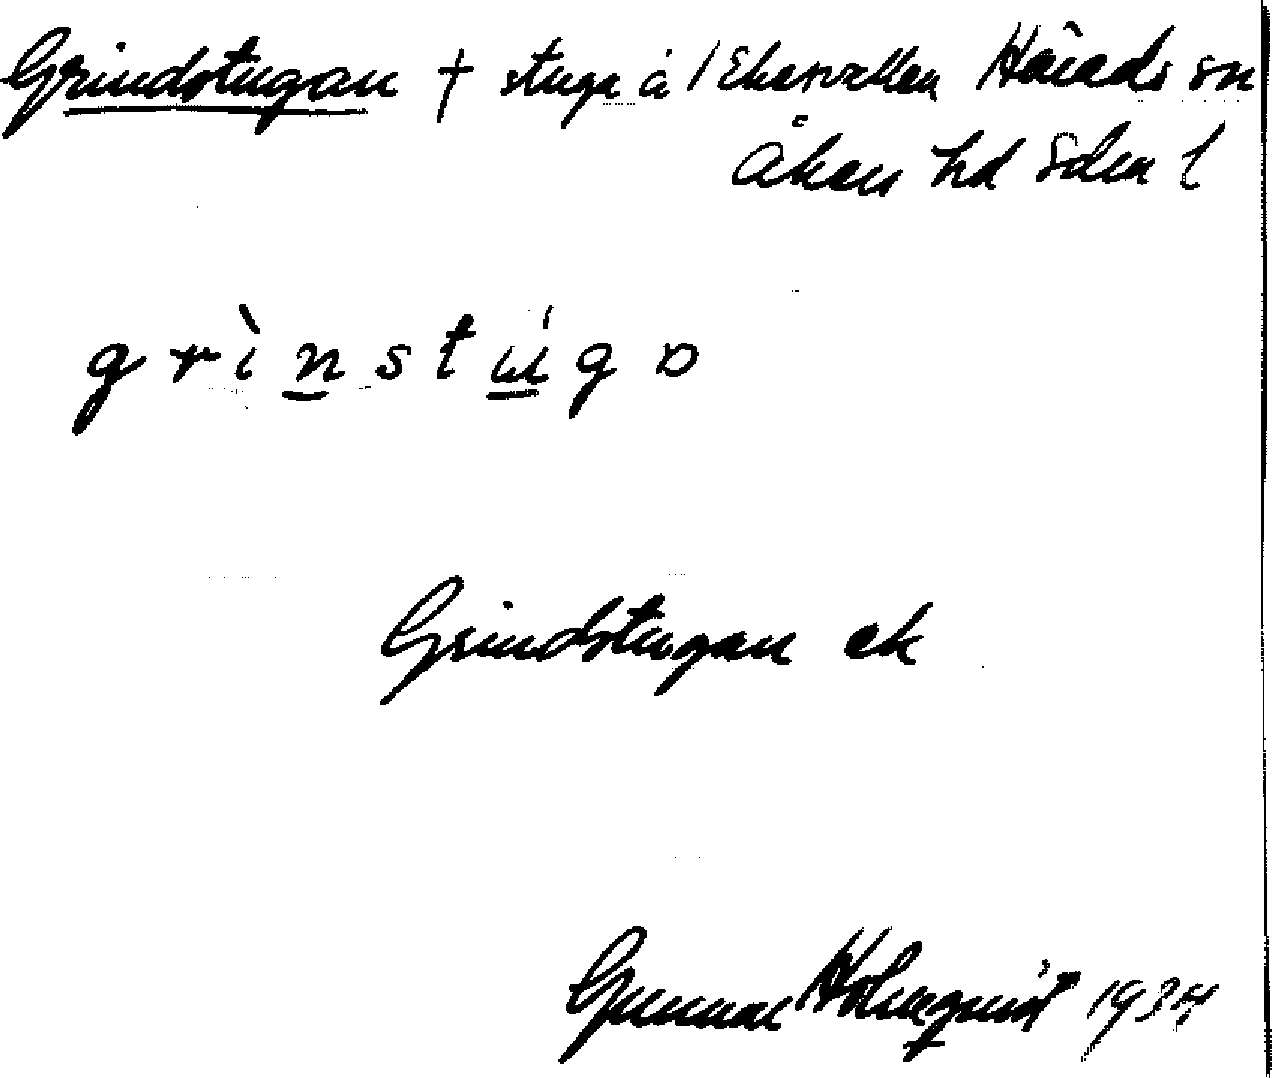 Grindstugan † stuga å / Ekensvallen Härads sn
Åkers hd Södm l
grìnstúgɒ
Grindstugan ek
Gunnar Holmquist 1934